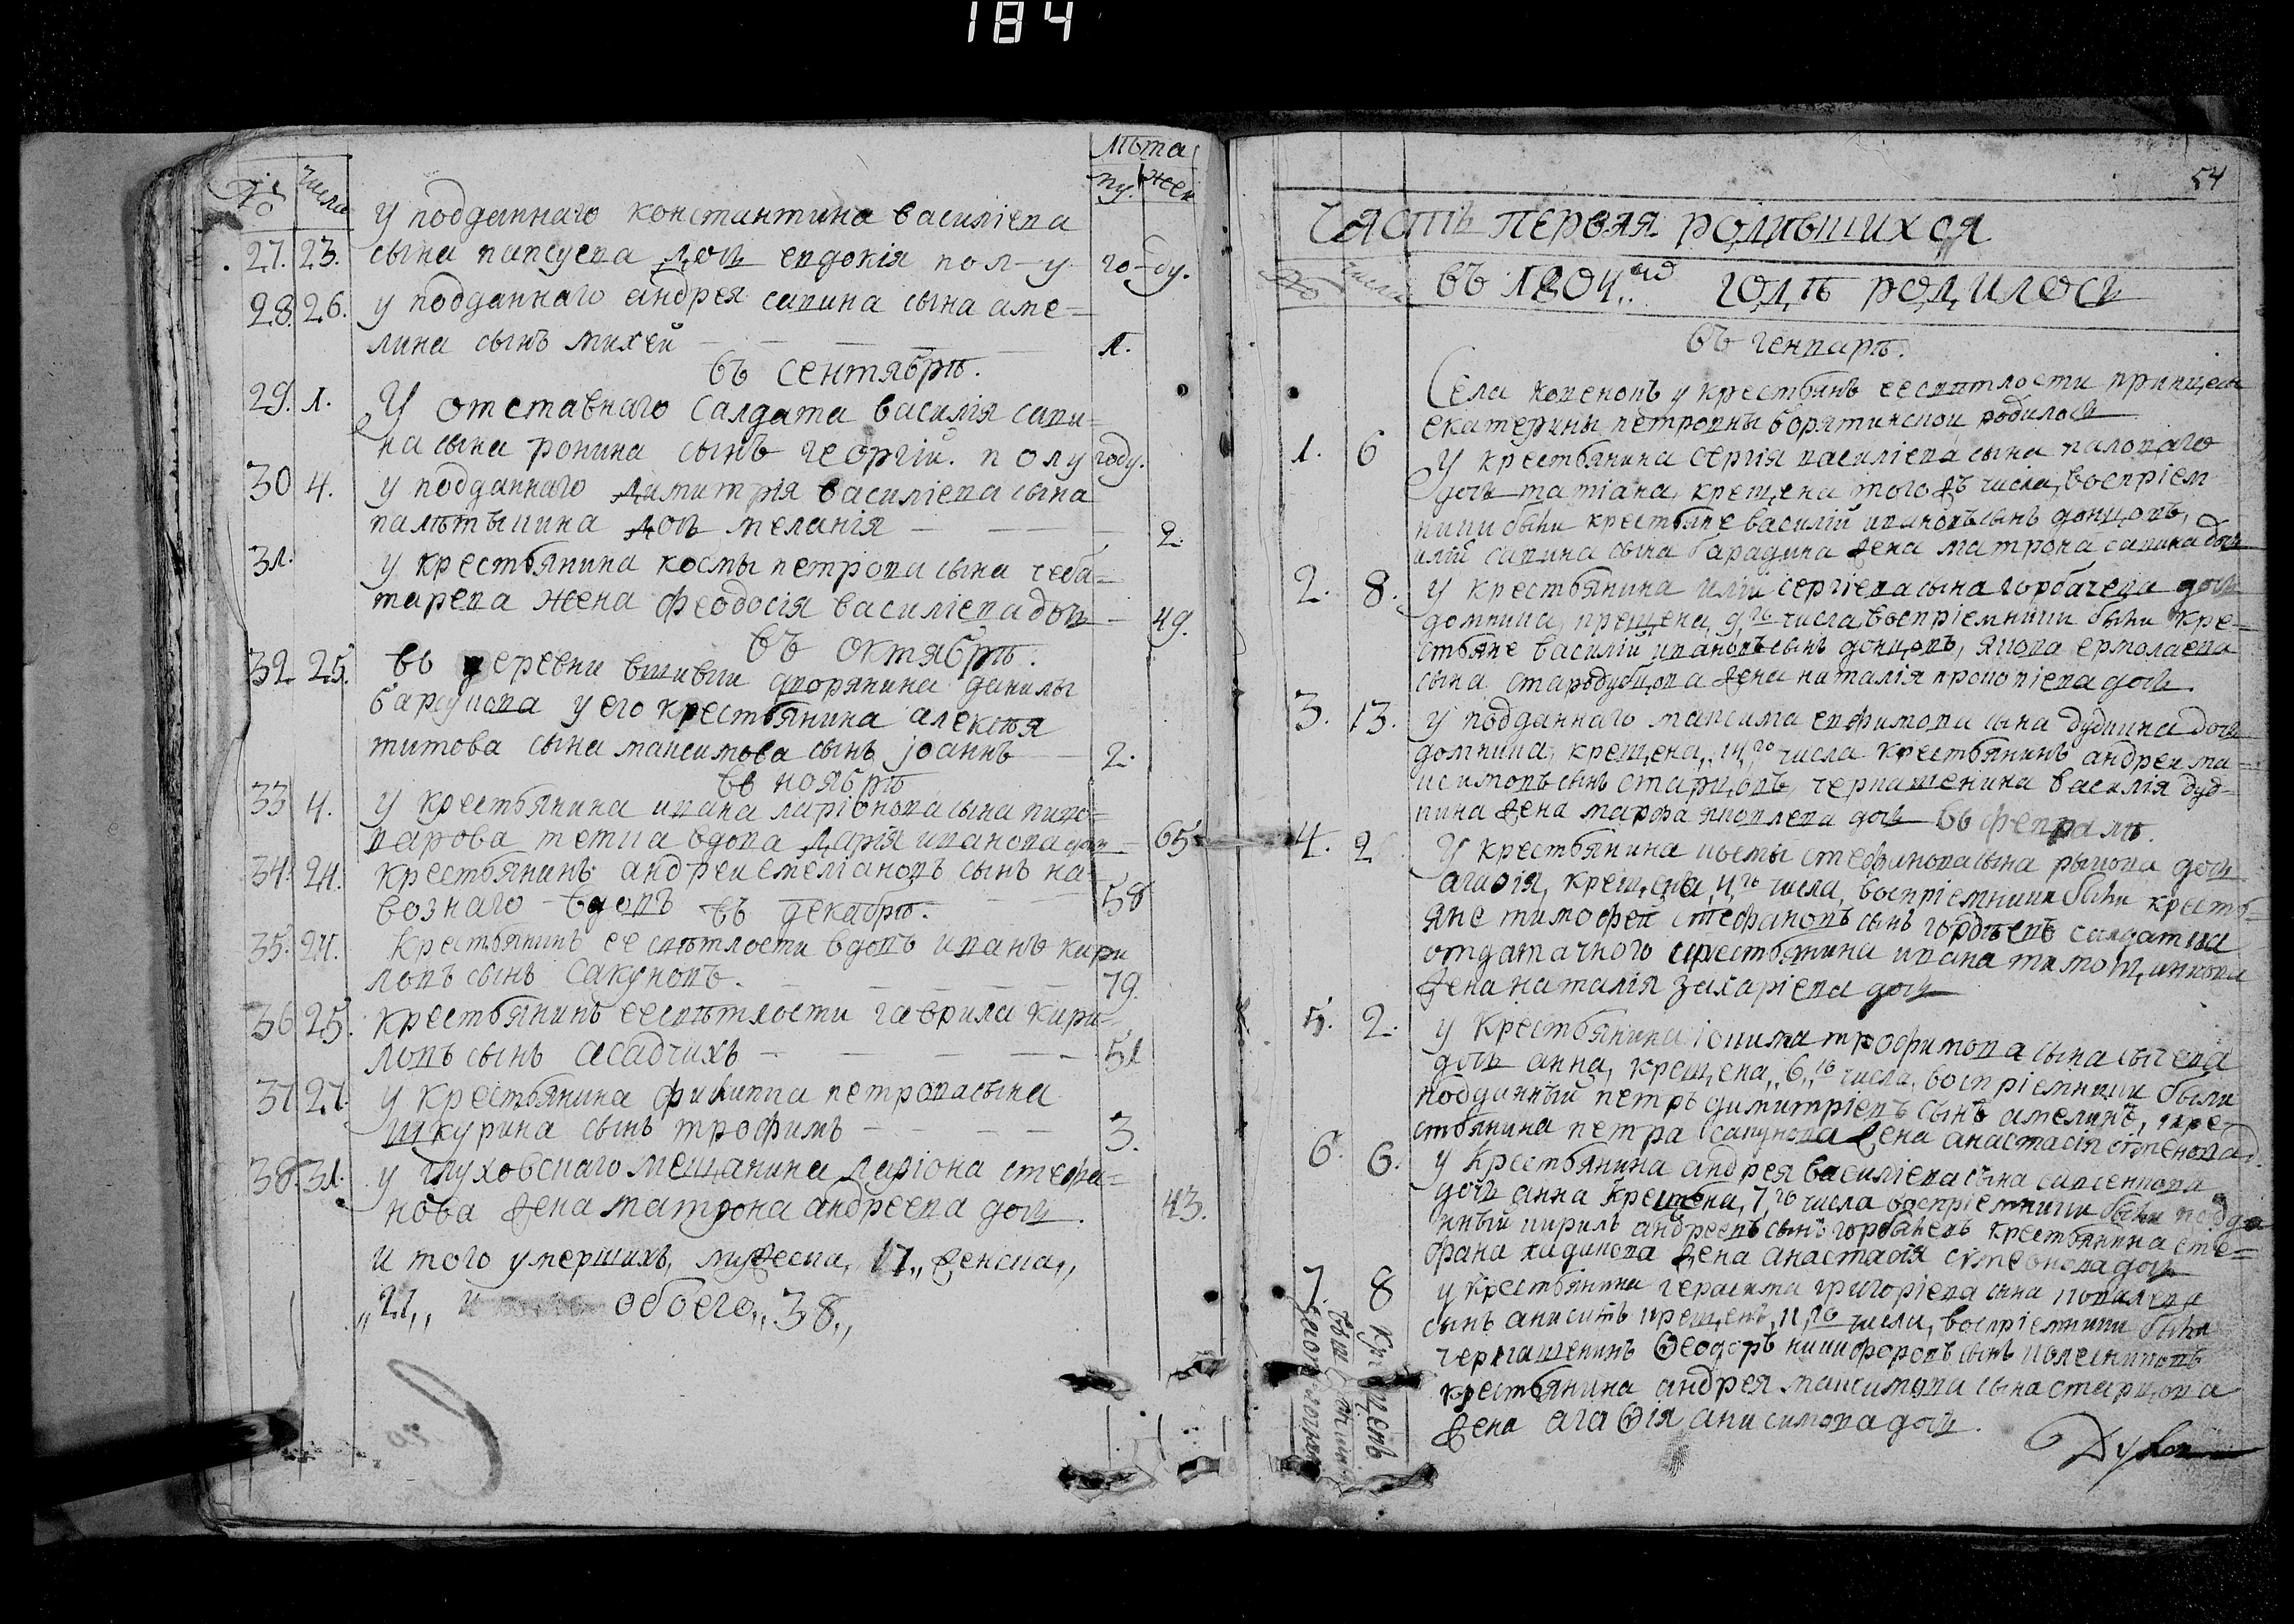 184
№ числа лѣта
му. жен
У подданнаго константина василіева
27. 23. сына папсуева дочь евдокія пол-у го-ду.
28. 26. у подданнаго андрея савина сына аме=
лина сынъ михей 1.
въ сентябрѣ.
29. 1. У отставнаго салдата василія сави=
на сына ронина сынъ георгій. полу году.
30 4. у подданнаго димитрія василіева сына
дочь меланія 2.
31. у крестьянина космы петрова сына чеба=
тарева жена феодосія василіева дочь 49.
въ октябрѣ.
32 25. въ деревни дворянина данилы
у его крестьянина алексѣя
титова сына максимова сынъ іоаннъ 2.
въ ноябрѣ
33 4. у крестьянина ивана ларіонова сына пиво=
варова вдова дарія иванова дочь 65
34. 24. крестьянинъ андрей емеліановъ сынъ на=
вознаго вдовъ 58
въ декабрѣ.
35. 24. Крестьянинъ ее свѣтлости вдовъ иванъ кири
ловъ сынъ сакуновъ. 79.
36 25. крестьянинъ ее свѣтлости гаврила кири=
ловъ сынъ асадчихъ 51
37 27. у крестьянина филиппа петрова сына
шкурина сынъ трофимъ 3.
38. 31. у глуховскаго мещанина ларіона стефа=
нова жена матрона андреева дочь. 43.
и того умершихъ, мужеска, 17,, женска,,
,,21,, обоего,, 38,,
54
часть первая родившихся
№ числа въ 1804.. годѣ родилось
въ генварѣ.
Села коренокъ у крестьянъ ее свѣтлости принцесы
екатерины петровны борятинской родилось
1. 6 У крестьянина сергія василіева сына
дочь татіана, крещена того жъ числа, воспріем
ники были крестьяне василій ивановъ сынъ донцовъ,
савина сына барадина жена матрона савина дочь
2. 8. у крестьянина иліи сергіева сына горбачева дочь
домника, крещена, 9го числа, воспріемники были кре=
стьяне василій ивановъ сынъ донцовъ, якова ермолаева
сына стародубцова жена наталія прокопіева дочь.
3. 13. у подданнаго максима евфимова сына дудкина дочь
домника, крещена,, 14,го числа крестьянинъ андрей ма=
ксимовъ сынъ старцовъ, черкашенина василія дуд=
кина жена марфа яковлева дочь въ февралѣ.
4. 2 У крестьянина космы стефанова сына рыкова дочь
агафія, крещена, 4,го числа, воспріемники были кресть=
яне тимофей стефановъ сынъ салдатка
отдатачного крестьянина ивана
жена наталія захаріева дочь
5. 2. у Крестьянина іоакима трофимова сына сычева
дочь анна, крещена,, 6,,го числа, воспріемники были
подданный петръ димитріевъ сынъ амелинъ, кре=
стьянина петра сакунова жена анастасія
6. 6. у Крестьянина андрея василіева сына
дочь анна крещена, 7,го числа воспріемники были подда
нный кирилъ андреевъ сынъ крестьянина сте=
фана жена анастасія симеонова дочь
7. 8 у крестьянина герасима григоріева сына ковалева
сынъ крещенъ, 11,го числа, воспріемники были
черкашенинъ Ѳеодоръ никифоровъ сынъ колесниковъ
крестьянина андрея максимова сына старцова
жена агаѲія анисимова дочь.